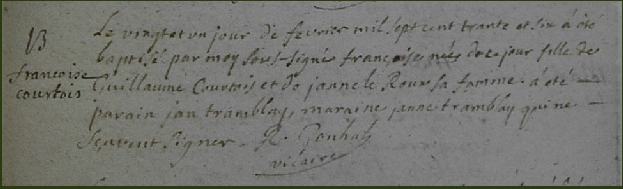 B
françoise
courtois
Le vingt et un jour de fevrier mil sept cent trante et six à été
baptisé par moy sous-signé françoise née de ce jour fille de
Guillaume Courtois et de janne le Roux sa famme. a été
parain jan tramblay, maraine janne tramblay qui ne
sçavent signer.
vicaire